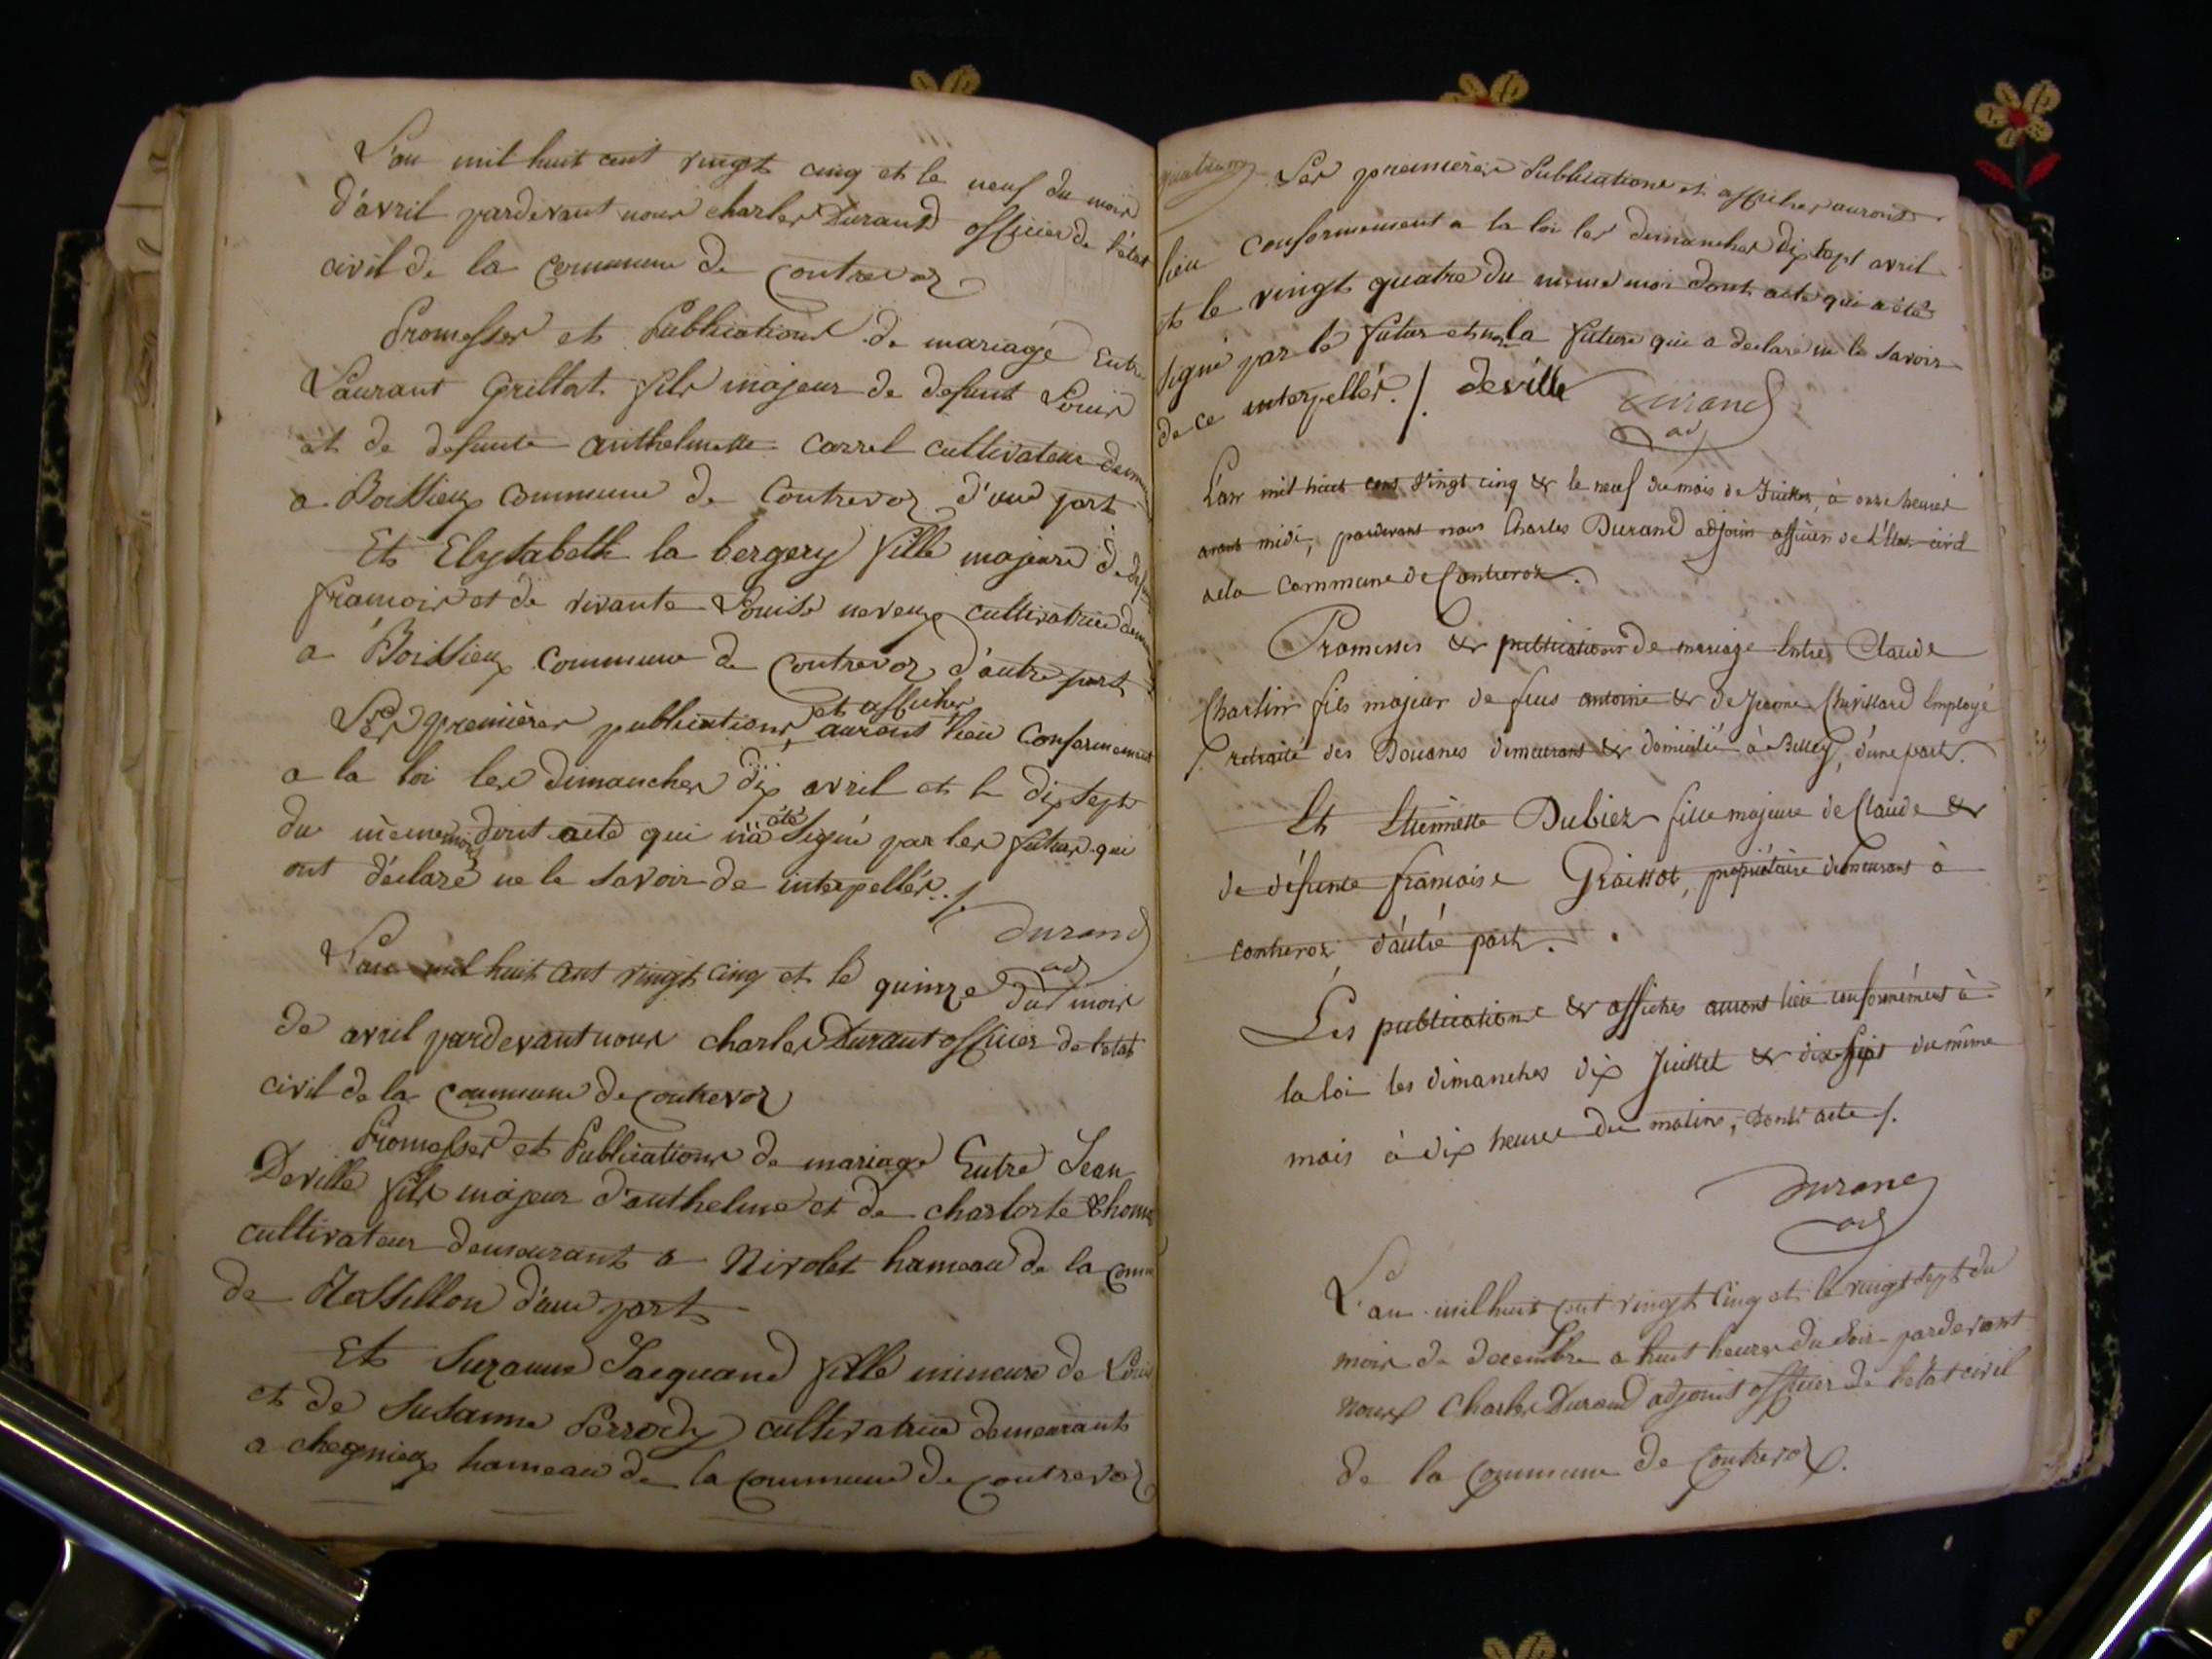 L'an mil huit cent vingt cinq et le neuf du mois
d'avril pardevant nous charles Durand officier de l'état
civil de la commune de Contrevoz
Promesses et Publications de mariage Entre
Laurant Grillat fils majeur de defunt Louis
et de defunte anthelmette Carrel cultivateur
a Boissieux Commune de Contrevoz d'une part
Et Elysabeth la bergery fille majeure de
françois et de vivante Louise neveux cultivatrice
a Boissieux Commune de Contrevoz d'autre part
et affiches
Les premières publications aurons lieu Conformement
a la loi les dimanches dix avril et le dix sept
du même mois dont acte qui n'a été signé par les futurs qui
ont déclaré ne le savoir de interpellés ./.
Durand
adj
L'an mil huit cent vingt cinq et le quinze du mois
de avril pardevant nous charles Durant officier de l'etat
civil de la commune de contrevoz
Promesses et Publications de mariage Entre Jean
Deville fils majeur d'anthelme et de charlotte thome
cultivateur demeurant a Nivolet hameau de la
de d'une part
Et Suzanne Jacquand fille mineure de Louis
et de Susanne Perrody cultivatrice demeurante
a chegnieux hameau de la commune de contrevoz
Les premières Publications et affiches aurons
lieu conformement a la loi les dimanches Dix sept avril
et le vingt quatre du même moi dont acte qui a été
signé par le futur et non la future qui a declaré ne le savoir
de ce interpellés ./. deville Durand
adj
L'an mil huit cent vingt cinq & le neuf du mois de Juillet, à onze heures
avant midi, pardevant nous Charles Durand adjoin officier de l'État civil
de la Commune de Contrevoz.
Promesses & publications de mariage Entre Claude
Charlin fils majeur de feus antoine & de Jeanne Chevillard Employé
retraité des Douanes demeurant & domicilié à Belley, d'une part.
Et Etiennette Dubiez fille majeure de Claude &
de défunte françoise Graissot, propriétaire demeurant à
contrevoz d'autre part.
Les publications & affiches auront lieu conformément à
la loi les dimanches dix Juillet & dix-sept du même
mois à dix heures du matin, dont acte /.
Durand
adj
L'an mil huit cent vingt Cinq et le vingt sept du
mois de decembre a huit heures du soir pardevant
nous Charles Durand adjoint officier de l'etat civil
de la Commune de Contrevoz.